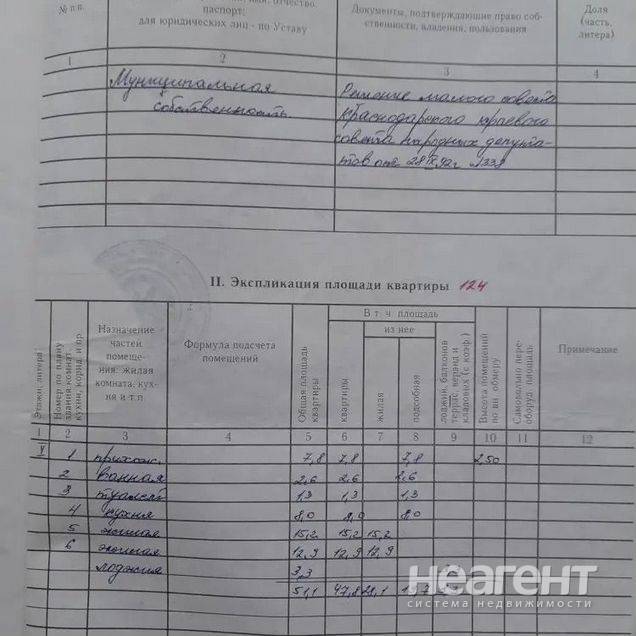 № п.п.
отчество,
паспорт;
для юридических лиц - по Уставу
Документы, подтверждающие право соб-
ственности, владения, пользования
Доля
(часть,
литера)
1 2 3 4
Муниципальная
собственность
Решение малого совета
Краснодарского краевого
совета народных депута-
тов от 28 IX 92 г
II. Экспликация площади квартиры 124
Этажи, литера
Номер по плану
здания комнат.
кухни, корид. и пр.
Назначение
частей
помеще-
ния: жилая
комната, кух-
ня и т.п
Формула подсчета
помещений
Общая площадь
квартиры
В т. ч площадь
квартиры
из нее
жилая
подсобная
лоджии, балконов
террас, веранд и
кладовых (с коэф.)
Высота помещений
по вн. обмеру
Самовольно пере-
оборуд. площадь
Примечание
1 2 3 4 5 6 7 8 9 10 11 12
V 1 прихож. 7,8 7,8 7,8 2,50
2 ванная 2,6 2,6 2,6
3 туалет 1,3 1,3 1,3
4 кухня 8,0 8,0 8,0
5 жилая 15,2 15,2 15,2
6 жилая 12,9 12,9 12,9
лоджия 3,3
51,1 47,8 28,1
неагент
система недвижимости